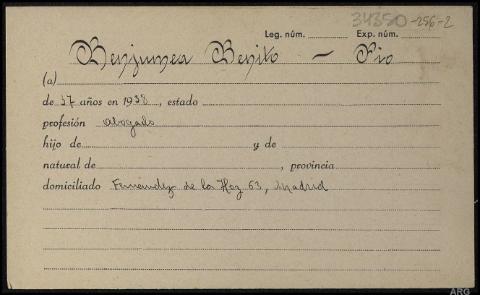 34350-256-2
Leg. núm. Exp. núm.
Benjumea Benito - Pío
(a)
de 37 años en 1938, estado
profesión abogado
hijo de y de
natural de , provincia
domiciliado Fernández de la Hoz 63, Madrid
ARG